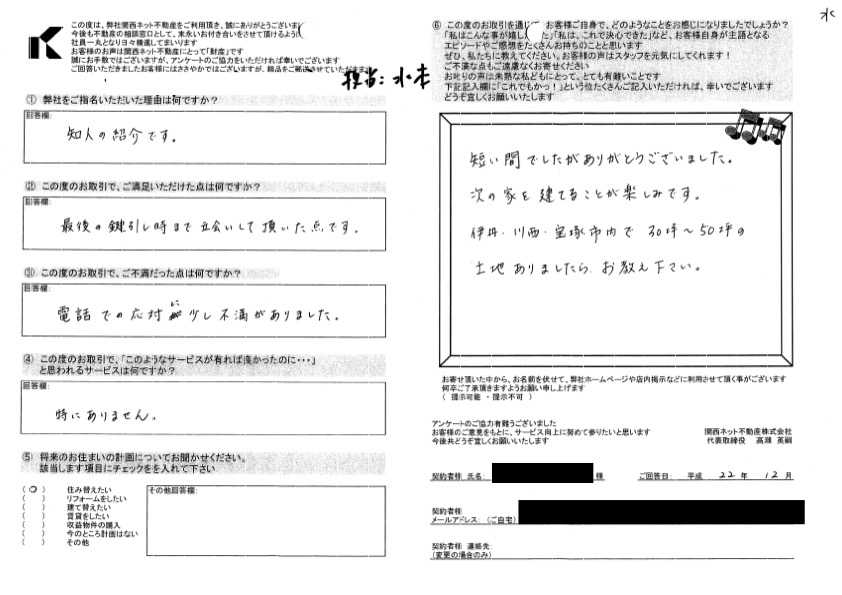 水
この度は、弊社関西ネット不動産をご利用頂き、誠にありがとうございま
今後も不動産の相談窓口として、末永いお付き合いをさせて頂けるよう
社員一丸となり日々精進してまいります
お客様のお声は関西ネット不動産にとって「財産」です
誠にお手数ではございますが、アンケートのご協力をいただければ幸いでございます
ご回答いただきましたお客様にはささやかではございますが、粗品をご郵送させていただきます
担当:水本
① 弊社をご指名いただいた理由は何ですか?
回答欄:
知人の紹介です。
② この度のお取引で、ご満足いただけた点は何ですか?
回答欄:
最後の鍵引し時まで立会いして頂いた点です。
③ この度のお取引で、ご不満だった点は何ですか?
回答欄:
電話での応対に少し不満がありました。
④ この度のお取引で、「このようなサービスが有れば良かったのに・・・」
と思われるサービスは何ですか?
回答欄:
特にありません。
⑤ 将来のお住まいの計画についてお聞かせください。
該当します項目にチェックをを入れて下さい
( ○ ) 住み替えたい
( ) リフォームをしたい
( ) 建て替えたい
( ) 賃貸をしたい
( ) 収益物件の購入
( ) 今のところ計画はない
( ) その他
その他回答欄:
⑥ この度のお取引を通じ お客様ご自身で、どのようなことをお感じになりましたでしょうか?
「私はこんな事が嬉し た」「私は、これで決心できた」など、お客様自身が主語となる
エピソードやご感想をたくさんお持ちのことと思います
ぜひ、私たちに教えてください。お客様の声はスタッフを元気にしてくれます!
ご不満な点もご遠慮なくお寄せください
お叱りの声は未熟な私どもにとって、とても有難いことです
下記記入欄に「これでもかっ!」という位たくさんご記入いただければ、幸いでございます
どうぞ宜しくお願いいたします
短い間でしたがありがとうございました。
次の家を建てることが楽しみです。
伊丹・川西・宝塚市内で 30坪〜50坪の
土地ありましたら、お教え下さい。
お寄せ頂いた中から、お名前を伏せて、弊社ホームページや店内掲示などに利用させて頂く事がございます
何卒ご了承頂きますようお願い申し上げます
( 提示可能 ・ 提示不可 )
アンケートのご協力有難うございました
お客様のご意見をもとに、サービス向上に努めて参りたいと思います
今後共どうぞ宜しくお願いいたします
関西ネット不動産株式会社
代表取締役 高瀬 英嗣
契約者様 氏名: 様 ご回答日: 平成 22 年 12 月
契約者様
メールアドレス: (ご自宅)
契約者様 連絡先:
(変更の場合のみ)